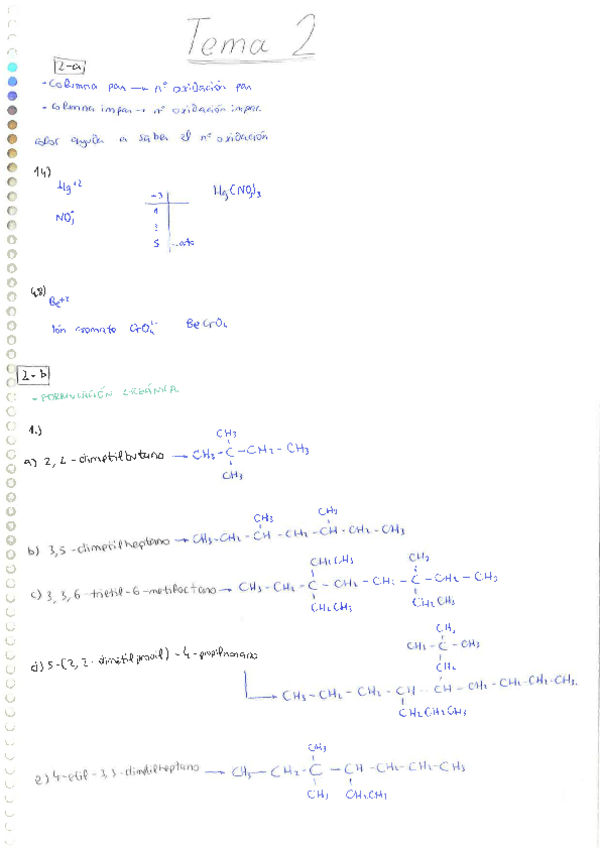 Tema 2
2-a
- Columna par → nº oxidación par
- Columna impar → nº oxidación impar
ayuda a saber el nº oxidación
14)
Hg+2
NO3-
-3
1
3
5 -ato
Hg(NO3)3
48)
Be+2
Ión cromato CrO4 2- BeCrO4
2-b
- FORMULACIÓN ORGÁNICA
1.)
a) 2,2-dimetilbutano → CH3-C-CH2-CH3
CH3
CH3
b) 3,5-dimetilheptano → CH3-CH2-CH-CH2-CH-CH2-CH3
CH3 CH3
c) 3,3,6-trietil-6-metiloctano → CH3-CH2-C-CH2-CH2-C-CH2-CH3
CH2CH3 CH3
CH2CH3 CH2CH3
d) 5-(2,2-dimetilpropil)-4-propilnonano
CH3
CH3-C-CH3
CH2
CH3-CH2-CH2-CH-CH-CH2-CH2-CH2-CH3
CH2CH2CH3
e) 4-etil-3,3-dimetilheptano → CH3-CH2-C-CH-CH2-CH2-CH3
CH3
CH3 CH2CH3